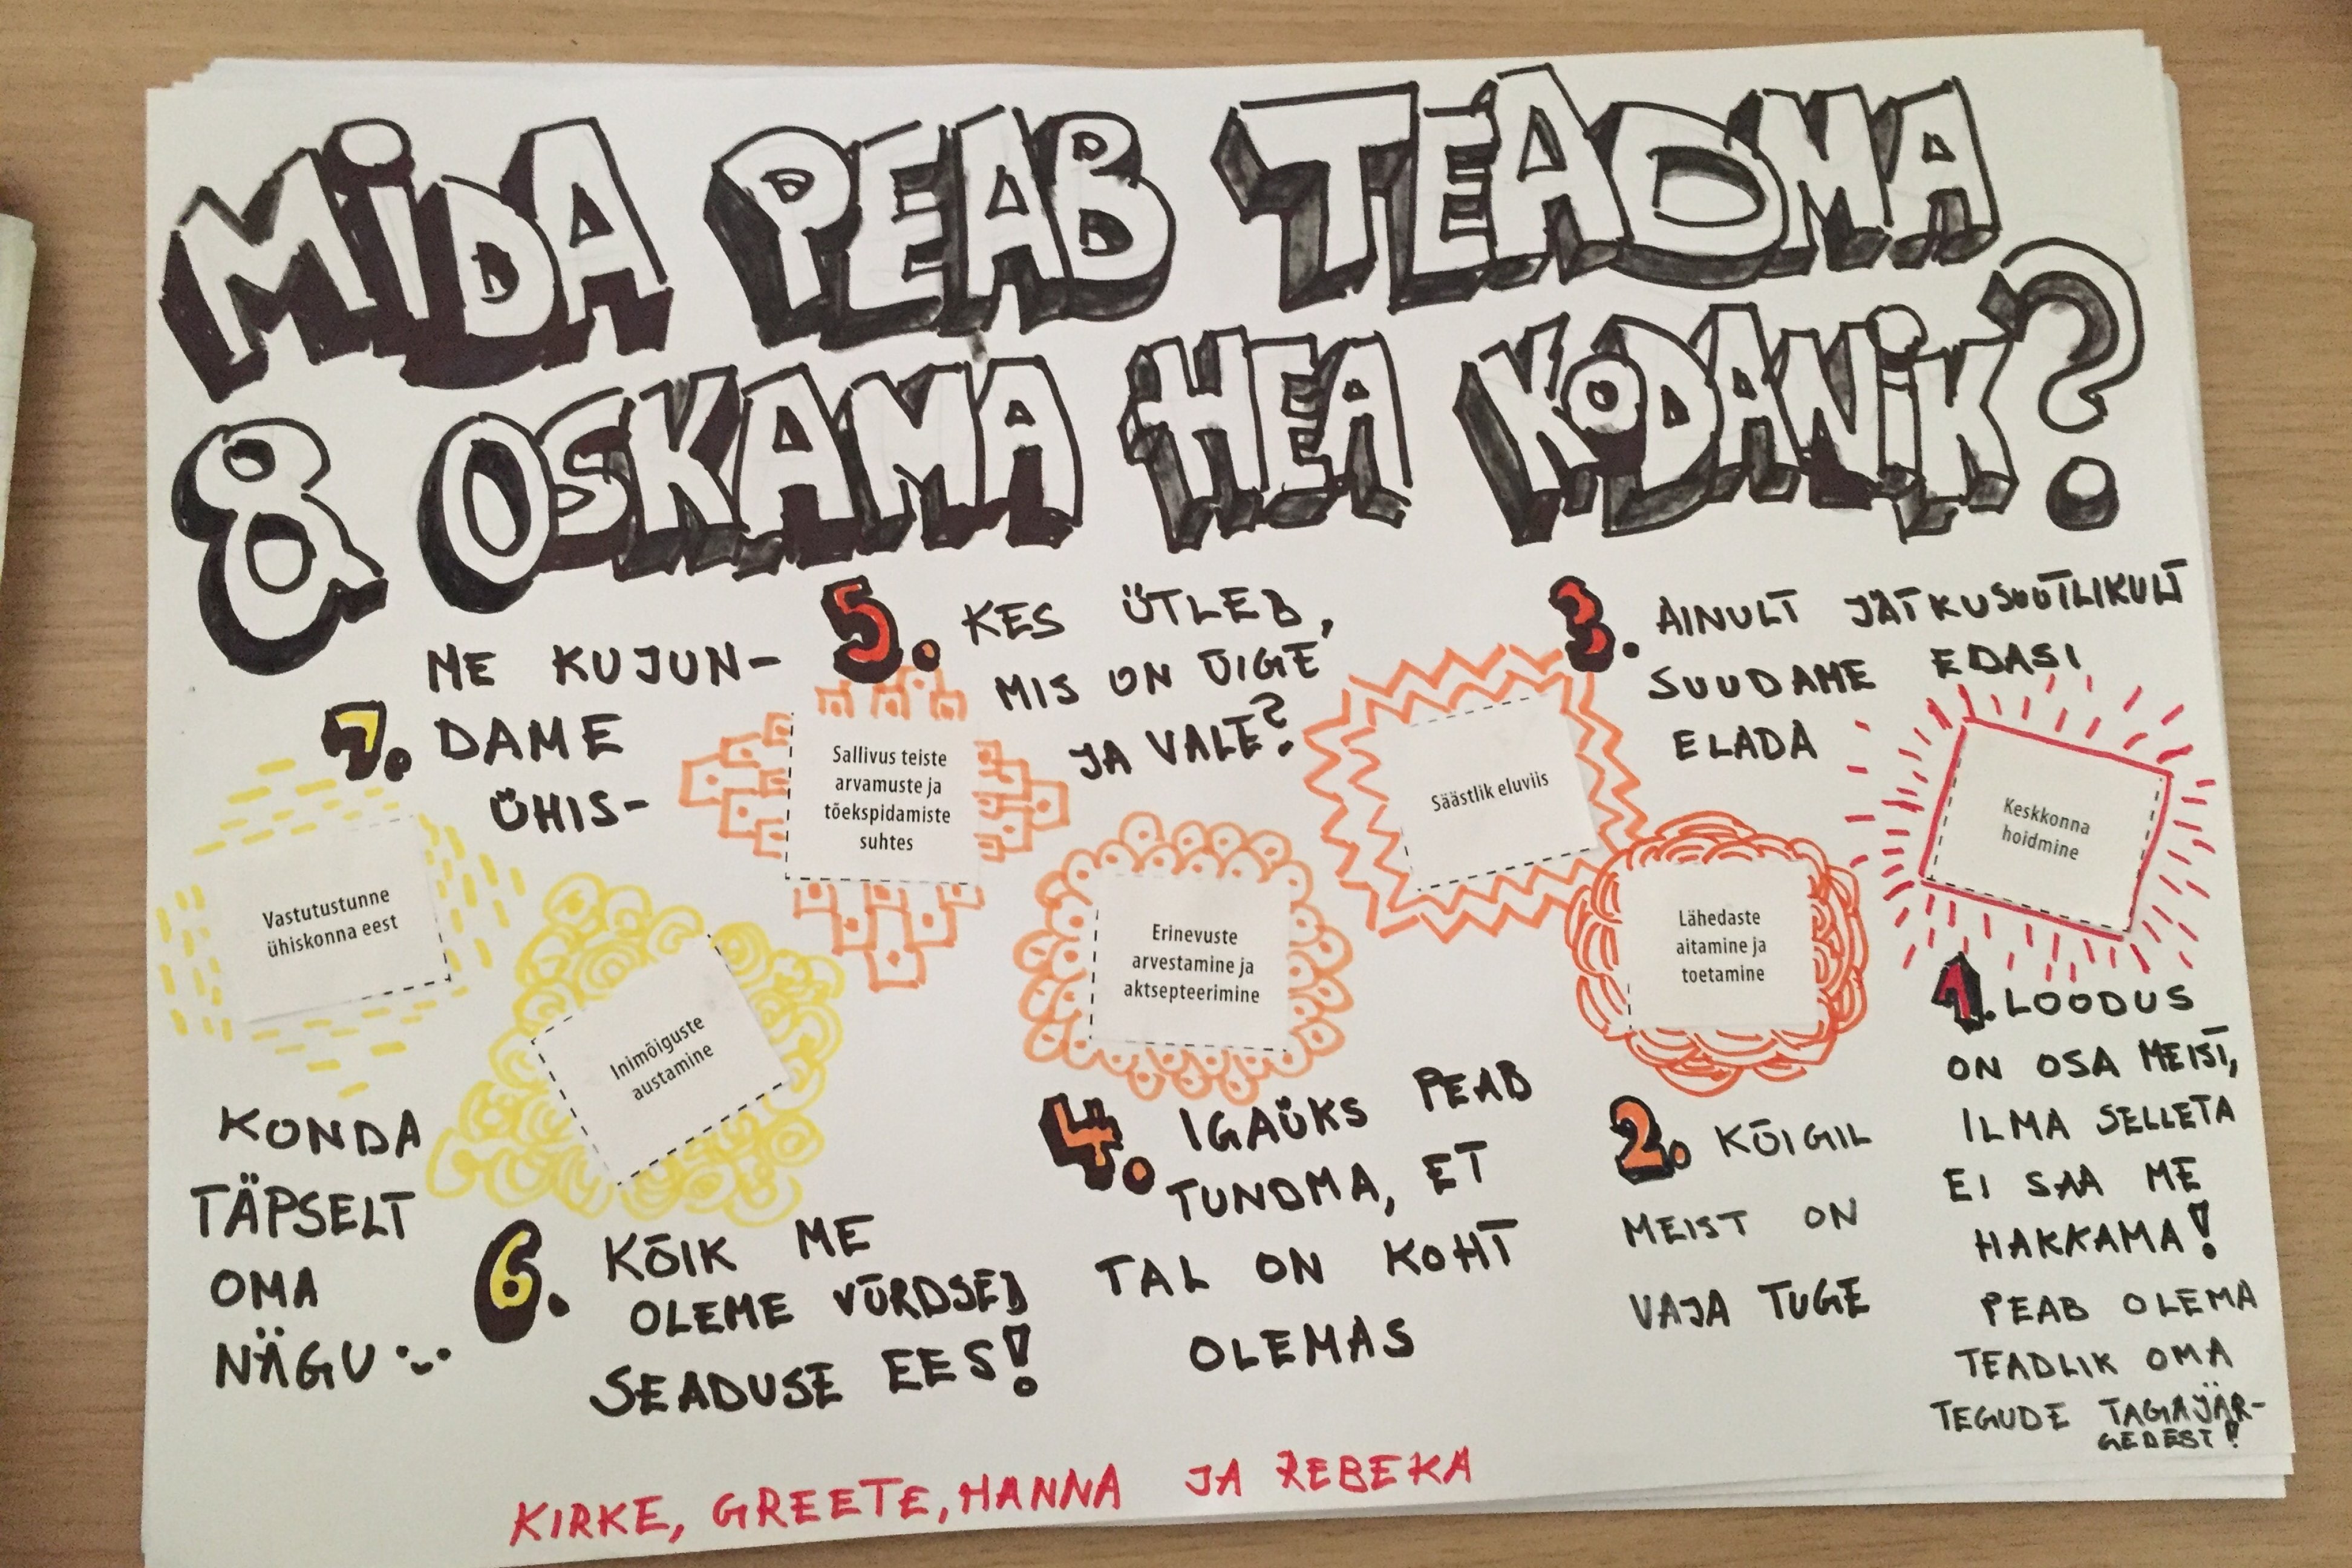 MIDA PEAB TEADMA
& OSKAMA HEA KODANIK?
1. LOODUS
ON OSA MEIST,
ILMA SELLETA
EI SAA ME
HAKKAMA!
PEAB OLEMA
TEADLIK OMA
TEGUDE TAGAJÄR-
GEDEST!
Keskkonna
hoidmine
2. KÕIGIL
MEIST ON
VAJA TUGE
Lähedaste
aitamine ja
toetamine
3. AINULT JÄTKUSUUTLIKULT
SUUDAME EDASI
ELADA
Säästlik eluviis
4. IGAÜKS PEAB
TUNDMA, ET
TAL ON KOHT
OLEMAS
Erinevuste
arvestamine ja
aktsepteerimine
5. KES ÜTLEB,
MIS ON ÕIGE
JA VALE?
Sallivus teiste
arvamuste ja
tõekspidamiste
suhtes
6. KÕIK ME
OLEME VÕRDSED
SEADUSE EES!
Inimõiguste
austamine
7. ME KUJUN-
DAME
ÜHIS-
KONDA
TÄPSELT
OMA
NÄGU
Vastutustunne
ühiskonna eest
KIRKE, GREETE, HANNA JA REBEKA